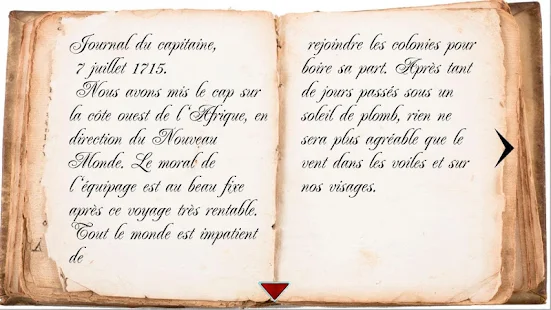 Journal du capitaine,
7 juillet 1715.
Nous avons mis le cap sur
la côte ouest de l'Afrique, en
direction du Nouveau
Monde. Le moral de
l'équipage est au beau fixe
après ce voyage très rentable.
Tout le monde est impatient
de
rejoindre les colonies pour
boire sa part. Après tant
de jours passés sous un
soleil de plomb, rien ne
sera plus agréable que le
vent dans les voiles et sur
nos visages.